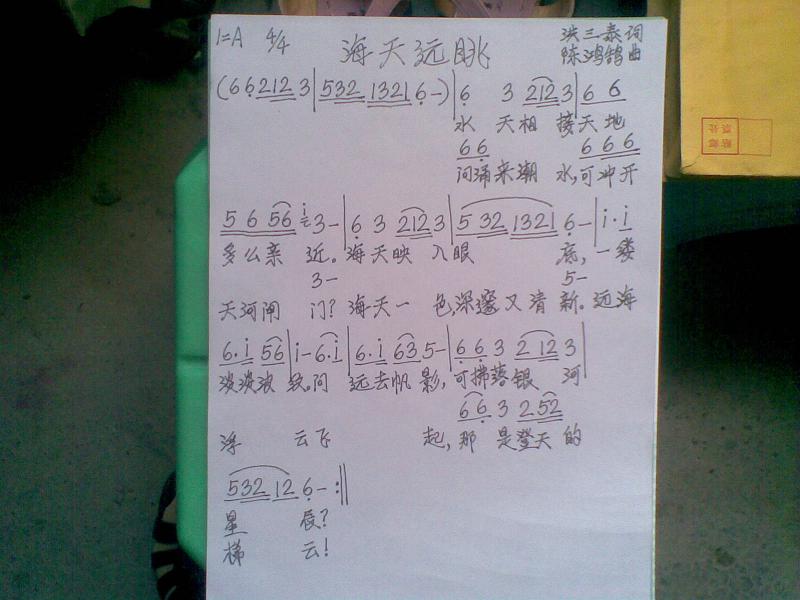 1=A 4/4 海天远眺 洪三泰词
陈鸿鹄曲
(6 6 2 1 2 3 | 5 3 2 1 3 2 1 6 -) | 6 3 2 1 2 3 | 6 6
水 天相 接天地
6 6 6 6 6
问涌来潮 水,可冲开
5 6 5 6 i 3 - | 6 3 2 1 2 3 | 5 3 2 1 3 2 1 6 - | i · i
多么亲 近。海天映 入眼 底,一缕
3 - 5 -
天河闸 门?海天一 色深邃又清新。远海
6 · i 5 6 | i - 6 · i | 6 · i 6 3 5 - | 6 6 3 2 1 2 3 |
淡淡波 纹。问 远去帆 影,可拂落银 河
6 6 3 2 5 2
浮 云飞 起,那 是登天的
5 3 2 1 2 6 - :‖
星 辰?
梯 云!